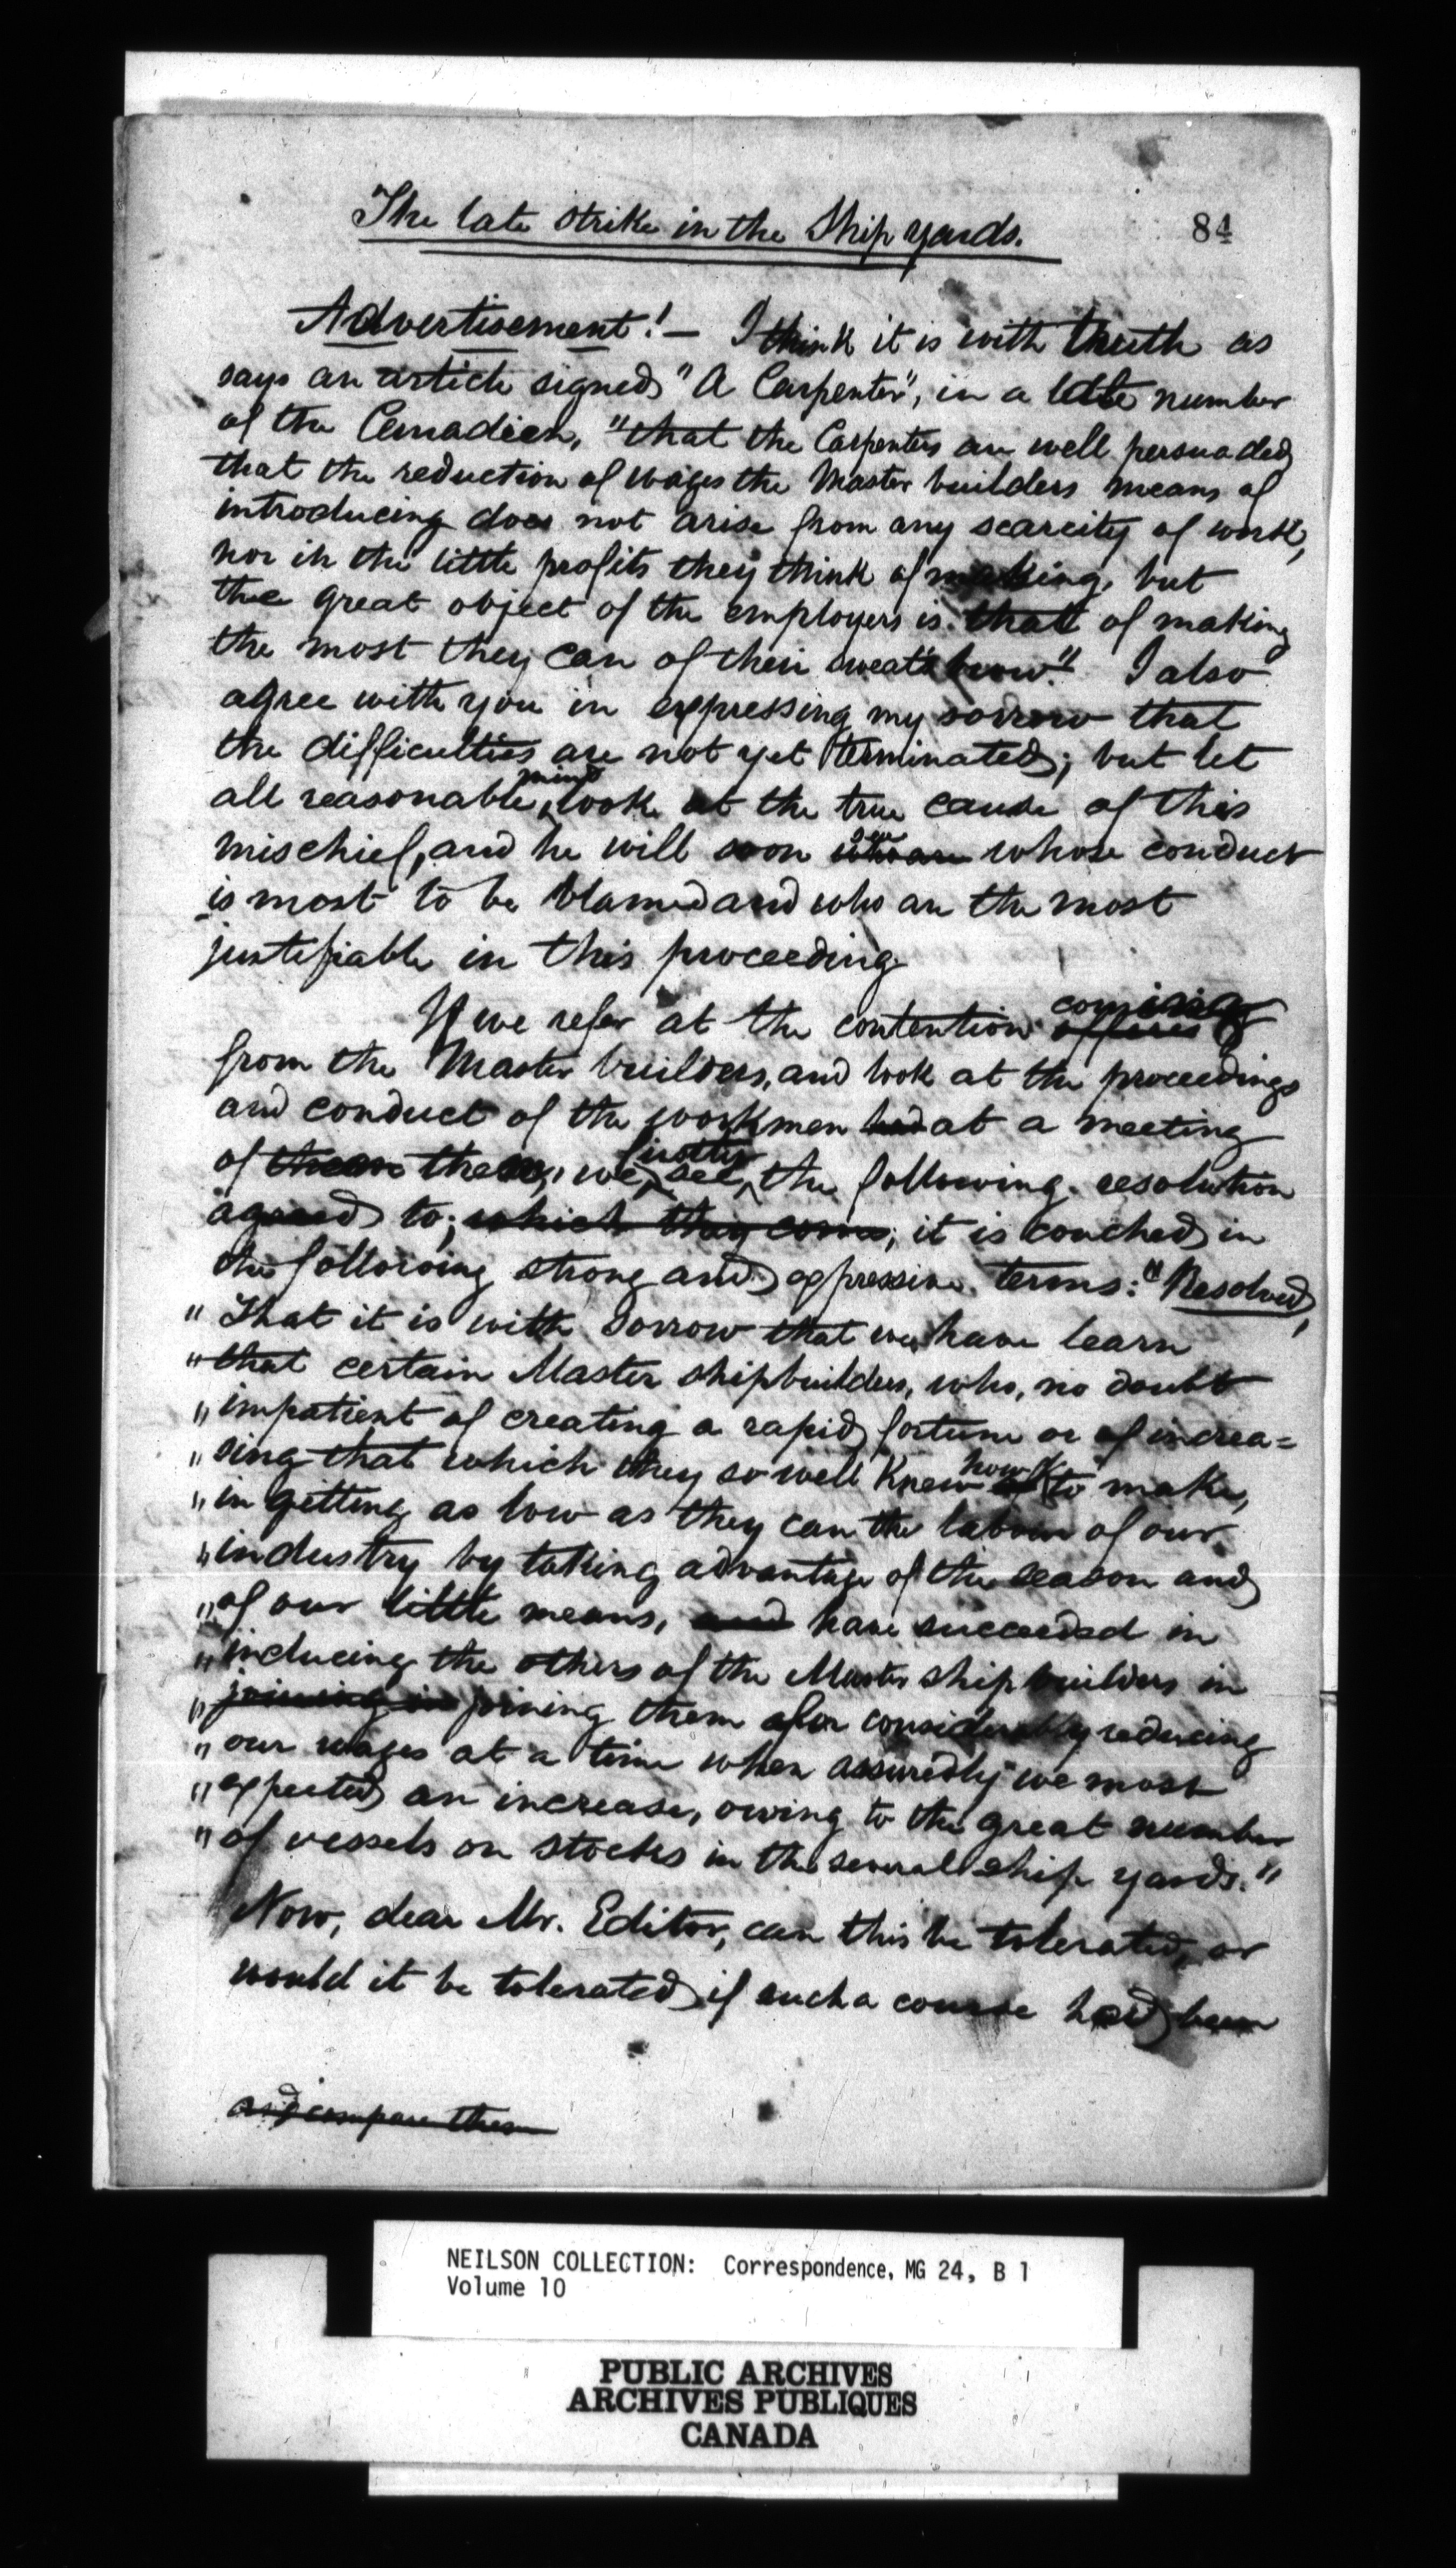 The late strike in the Ship yards.
84
Advertisement! — I think it is with truth as
says an article signed "A Carpenter", in a late number
of the Canadien, "that the Carpenters are well persuaded
that the reduction of wages the Master builders means of
introducing does not arise from any scarcity of work,
nor in the little profits they think of making, but
the great object of the employers is that of making
the most they can of their sweat's brow." I also
agree with you in expressing my sorrow that
the difficulties are not yet terminated; but let
all reasonable mind look at the true cause of this
mischief, and he will soon see whose conduct
is most to be blamed and who are the most
justifiable in this proceeding
If we refer at the contention coming
from the Master builders, and look at the proceedings
and conduct of the workmen had at a meeting
of them them, we firstly see, the following resolution
agreed to; which they come; it is couched in
the following strong and expressive terms: "Resolved,
" That it is with sorrow that we have learn
" that certain Master shipbuilders, who, no doubt
" impatient of creating a rapid fortune or of increa=
" sing that which they so well knew how to make,
" in getting as low as they can the labour of our
" industry by taking advantage of the season and
" of our little means, and have succeeded in
" inducing the others of the Master ship builders in
" joining in joining them for considerably reducing
" our wages at a time when assuredly we most
" expected an increase, owing to the great number
" of vessels on stocks in the several ship yards."
Now, dear Mr. Editor, can this be tolerated, or
would it be tolerated if such a course had been
and compare them
NEILSON COLLECTION: Correspondence, MG 24, B 1
Volume 10
PUBLIC ARCHIVES
ARCHIVES PUBLIQUES
CANADA